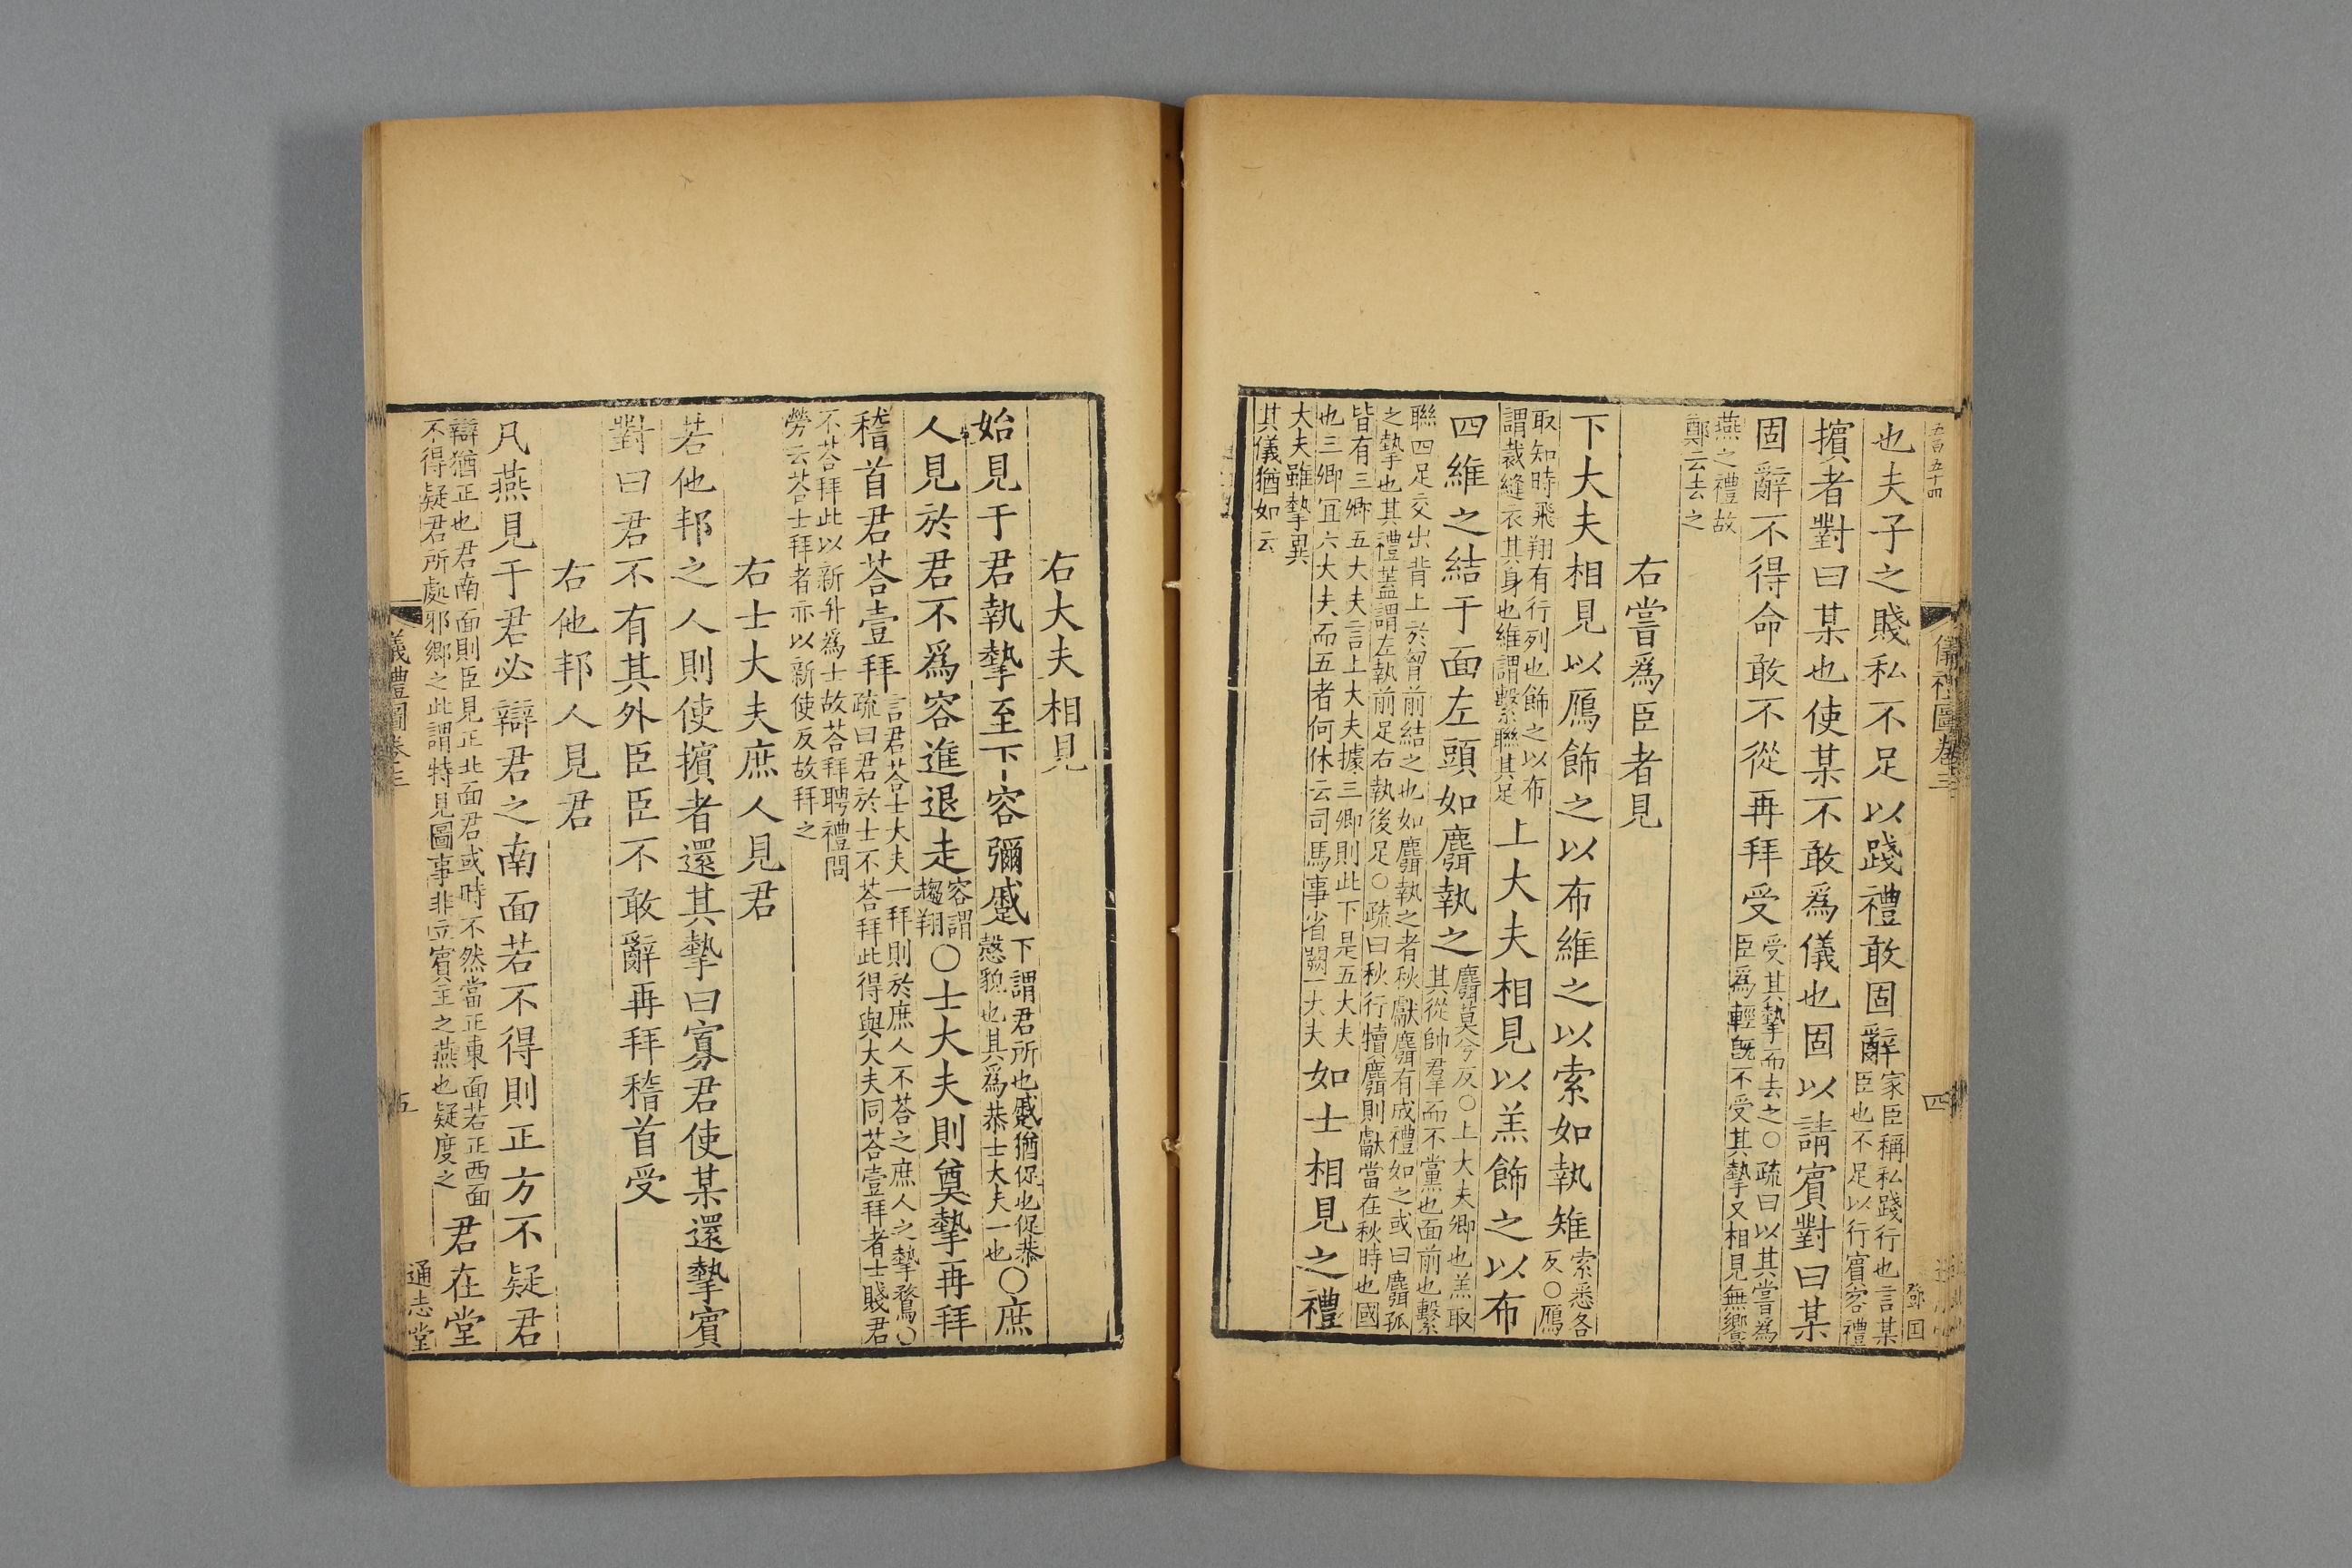 五百五十四
儀禮圖卷三
四
鄧国
也夫子之賤私不足以踐禮敢固辭家臣稱私踐行也言某
臣也不足以行賓客禮
擯者對曰某也使某不敢爲儀也固以請賓對曰某
固辭不得命敢不從再拜受受其摯而去之○疏曰以其嘗爲
臣爲輕旣不受其摯又相見無饗
燕之禮故
鄭云去之
右嘗爲臣者見
下大夫相見以鴈飾之以布維之以索如執雉索悉各
反○鴈
取知時飛翔有行列也飾之以布
謂裁縫衣其身也維謂繫聯其足上大夫相見以羔飾之以布
四維之結于面左頭如麛執之麛莫兮反○上大夫卿也羔取
其從帥羣而不黨也面前也繫
聯四足交出背上於胷前結之也如麛執之者秋獻麛有成禮如之或曰麛孤
之摯也其禮蓋謂左執前足右執後足○疏曰秋行犢麛則獻當在秋時也國
皆有三卿五大夫言上大夫據三卿則此下是五大夫
也三卿宜六大夫而五者何休云司馬事省闕一大夫如士相見之禮
大夫雖摯異
其儀猶如云
右大夫相見
始見于君執摯至下容彌蹙下謂君所也蹙猶促也促恭
慤貌也其爲恭士大夫一也○庶
人見於君不爲容進退走容謂
趨翔○士大夫則奠摯再拜
稽首君荅壹拜言君荅士大夫一拜則於庶人不荅之庶人之摯鶩○
疏曰君於士不荅拜此得與大夫同荅壹拜者士賤君
不荅拜此以新升爲士故荅拜聘禮問
勞云荅士拜者亦以新使反故拜之
右士大夫庶人見君
若他邦之人則使擯者還其摯曰寡君使某還摯賓
對曰君不有其外臣臣不敢辭再拜稽首受
右他邦人見君
凡燕見于君必辯君之南面若不得則正方不疑君
辯猶正也君南面則臣見正北面君或時不然當正東面若正西面
不得疑君所處邪鄉之此謂特見圖事非立賓主之燕也疑度之君在堂
儀禮圖卷三
五
通志堂